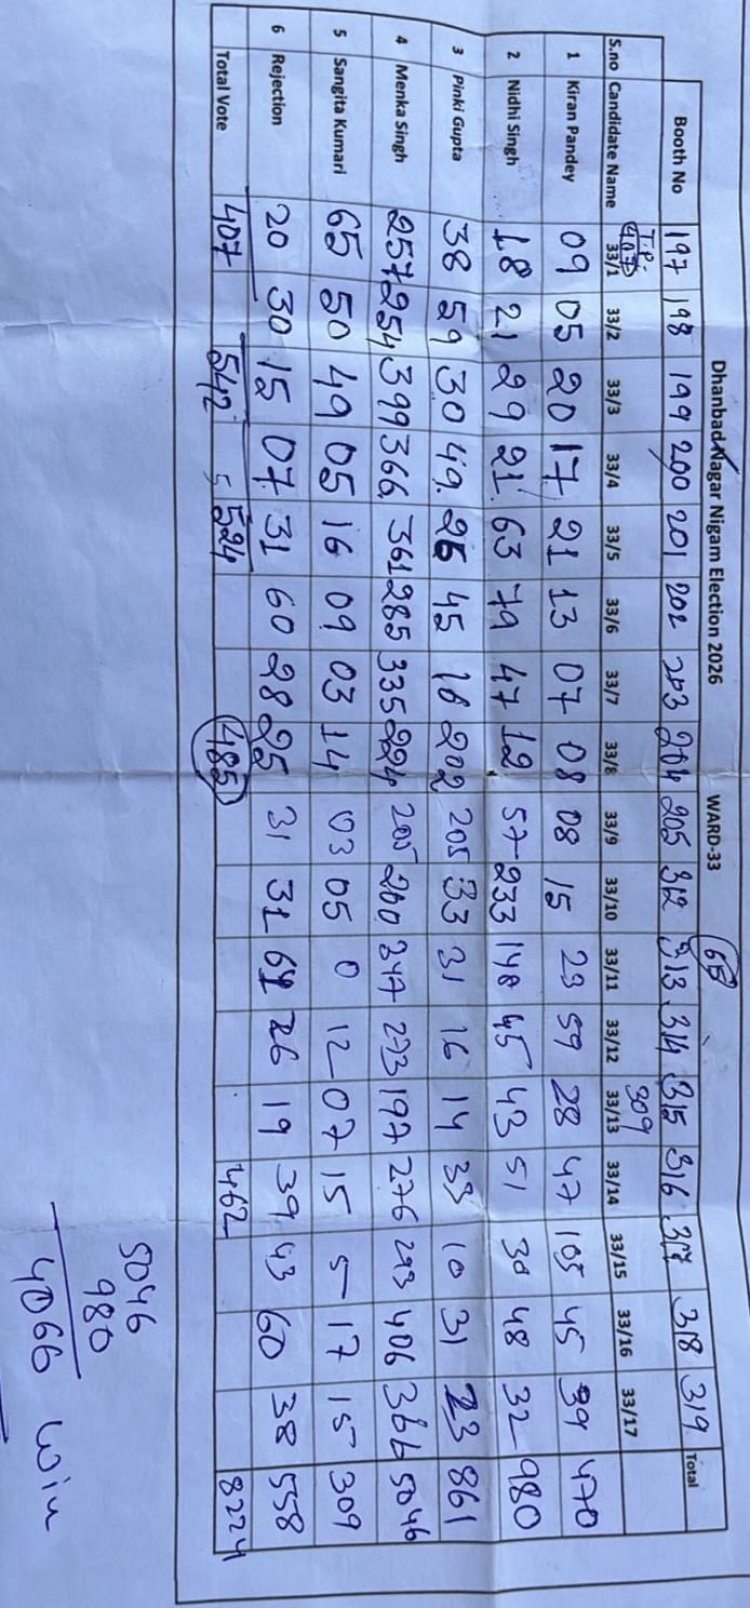 Dhanbad Nagar Nigam Election 2026 WARD-33
65
Booth No 197 198 199 200 201 202 203 204 205 312 313 314 315 316 317 318 319 Total
T.P. 407 309
S.no Candidate Name 33/1 33/2 33/3 33/4 33/5 33/6 33/7 33/8 33/9 33/10 33/11 33/12 33/13 33/14 33/15 33/16 33/17
1 Kiran Pandey 09 05 20 17 21 13 07 08 08 15 23 59 28 47 105 45 39 470
2 Nidhi Singh 18 21 29 21 63 79 47 12 57 233 148 45 43 51 30 48 32 980
3 Pinki Gupta 38 59 30 49 26 45 18 202 205 33 31 16 14 33 10 31 23 861
4 Menka Singh 257 254 399 366 361 285 335 224 205 200 347 273 197 276 293 406 366 5046
5 Sangita Kumari 65 50 49 05 16 09 03 14 03 05 0 12 07 15 5 17 15 309
6 Rejection 20 30 15 07 31 60 28 25 31 31 61 26 19 39 43 60 38 558
Total Vote 407 542 5 524 485 462 8224
5046
980
4066 Win